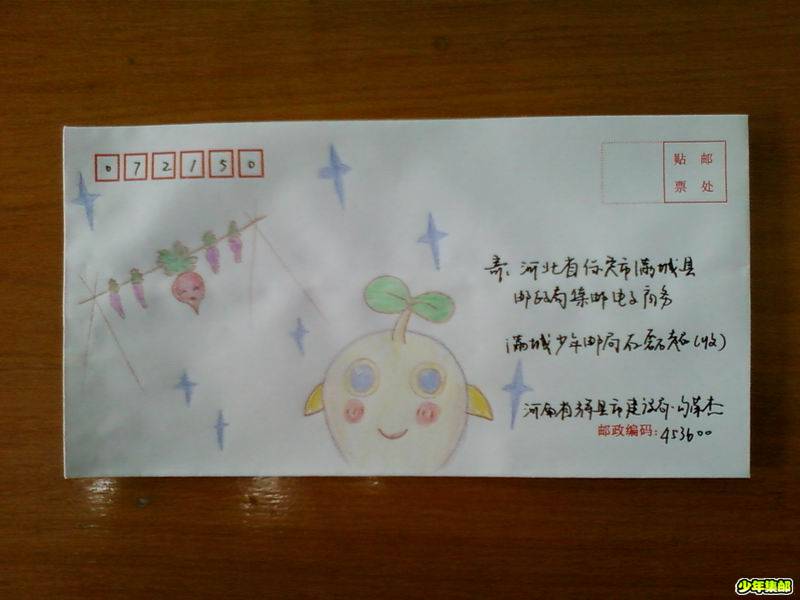 072150
贴 邮
票 处
寄：河北省保定市满城县
邮政局集邮电子商务
满城少年邮局 石磊 (收)
河南省辉县市建设局·
邮政编码：453600
少年集邮